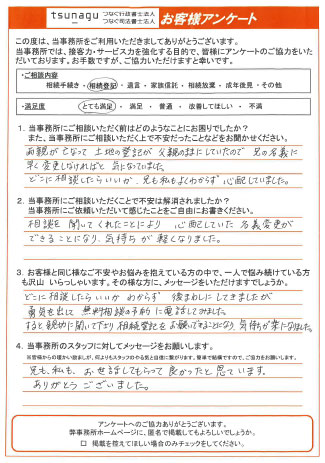 tsunagu つなぐ行政書士法人
つなぐ司法書士法人
お客様アンケート
この度は、当事務所をご利用いただきましてありがとうございます。
当事務所では、接客力・サービスを強化する目的で、皆様にアンケートのご協力をいただいております。お手数ですが、ご協力いただけますと幸いです。
・ご相談内容
相続手続き・相続登記・遺言・家族信託・相続放棄・成年後見・その他
・満足度
とても満足 ・ 満足 ・ 普通 ・ 改善してほしい ・ 不満
1. 当事務所にご相談いただく前はどのようなことにお困りでしたか？
また、当事務所にご相談いただく上で不安だったことなどをお聞かせください。
両親が亡なって 土地の登記が 父親のままにしていたので 兄の名義に
早く変更しなければと 気になっていました。
どこに相談したらいいか、兄も私もよくわからず 心配していました。
2. 当事務所にご相談いただくことで不安は解消されましたか？
当事務所にご依頼いただいて感じたことをご自由にお書きください。
相談を 聞いてくれたことにより 心配していた 名義変更が
できることになり、気持ちが 軽くなりました。
3. お客様と同じ様なご不安やお悩みを抱えている方の中で、一人で悩み続けている方
も沢山 いらっしゃいます。その様な方に、メッセージをいただけますでしょうか。
どこに相談したらいいか わからず 後まわしにしてきましたが
勇気を出して 無料相談の予約 に電話してみました。
すると親切に聞いて下さり 相続登記を お願いできることになり、気持ちが楽になりました。
4. 当事務所のスタッフに対してメッセージをお願いします。
※皆様からの暖かい励ましが、何よりもスタッフのやる気と自信に繋がります。簡単で結構ですので、ご協力をお願いします。
兄も、私も、お世話してもらって 良かったと 思ています。
ありがとう ございました。
アンケートへのご協力ありがとうございます。
弊事務所ホームページに、匿名で掲載してもよろしいでしょうか。
□ 掲載を控えてほしい場合のみチェックをしてください。